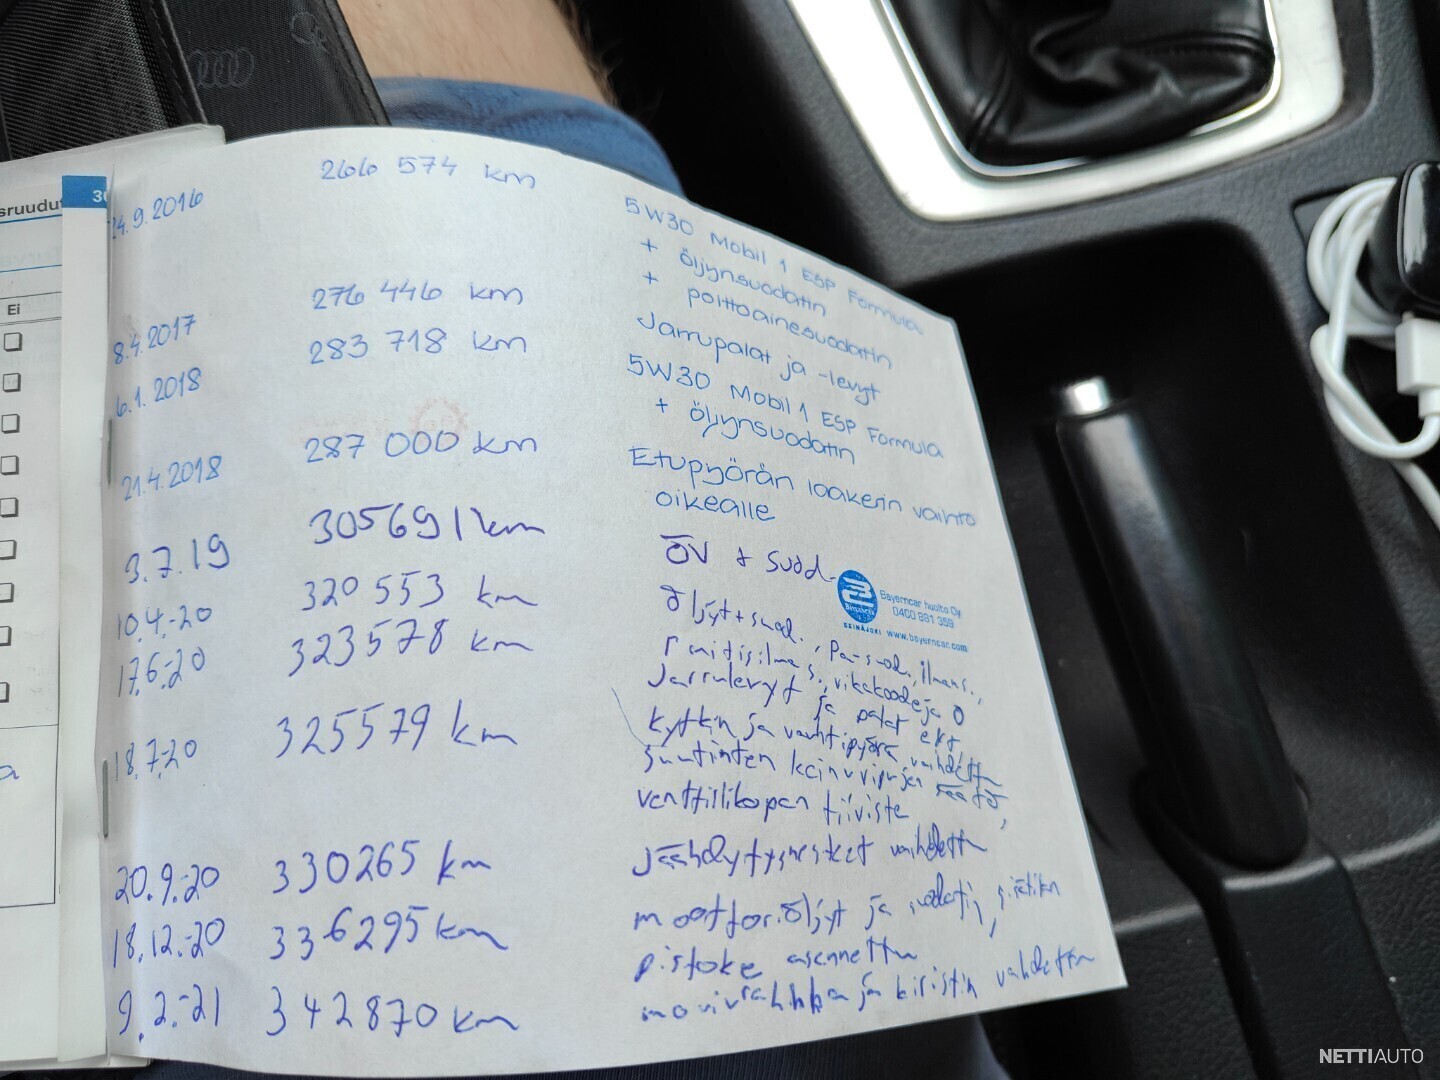 sruudut
Ei
30
24.9.2016 266 574 km 5W30 Mobil 1 ESP Formula
+ öljynsuodatin
+ polttoainesuodatin
8.4.2017 276 446 km Jarrupalat ja -levyt
6.1.2018 283 718 km 5W30 Mobil 1 ESP Formula
+ öljynsuodatin
21.4.2018 287 000 km Etupyörän laakerin vaihto
oikealle
3.7.19 305691 km ÖV + suod.
Bayerncar huolto Oy
0400 881 359
SEINÄJOKI www.bayerncar.com
10.4.-20 320 553 km Öljyt+suod., Pa-suod., ilmans.,
raitisilmas., vikakoodeja 0
17.6.-20 323578 km Jarrulevyt ja palat
18.7.-20 325579 km kytkin ja vauhtipyörä vaihdettu
suutinten keinuvipujen säätö,
venttiilikopan tiiviste
20.9.-20 330265 km jäähdytysnesteet vaihdettu
18.12.-20 336295 km moottoriöljyt ja suodatin,
pistoke asennettu
9.2.-21 342870 km moniurahihna ja kiristin vaihdettu
NETTIAUTO